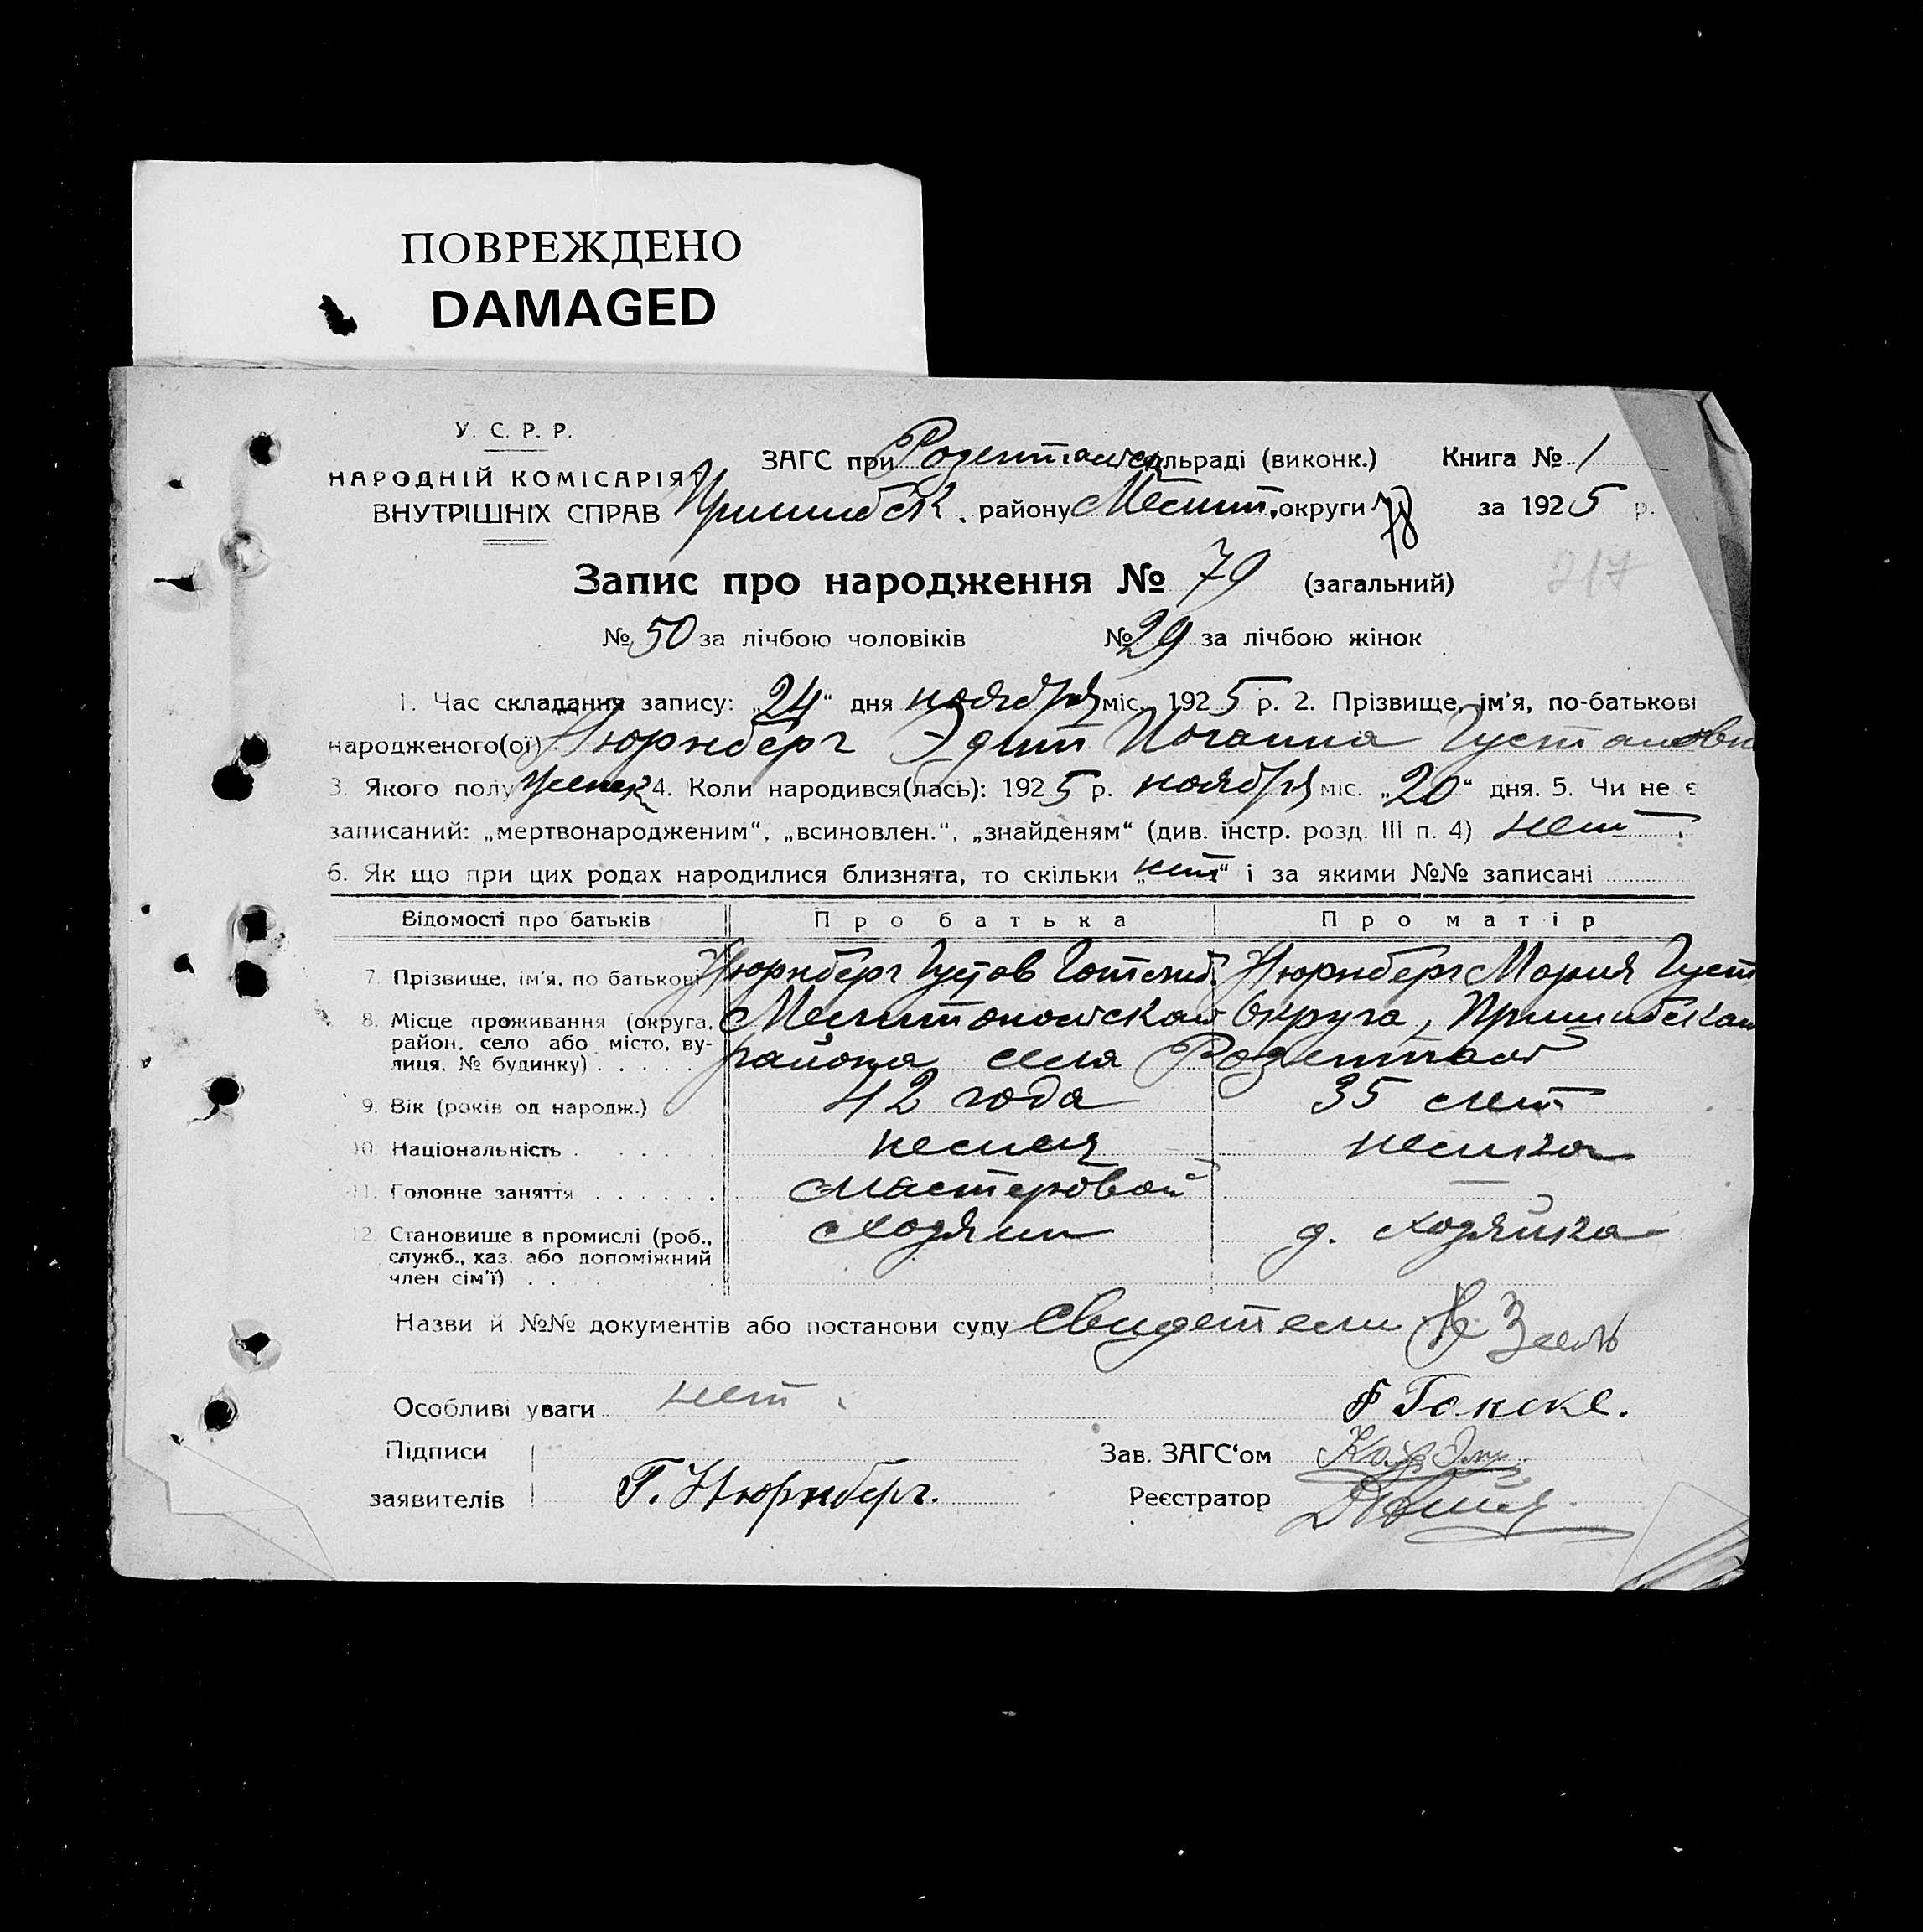 ПОВРЕЖДЕНО
DAMAGED
У. С. Р. Р.
НАРОДНІЙ КОМІСАРІЯТ
ВНУТРІШНІХ СПРАВ
ЗАГС при Розентальск сільраді (виконк.) Книга № 1
Пришибск. району Мелит. округи за 1925 р.
Запис про народження № 79 (загальний)
217
№ 50 за лічбою чоловіків № 29 за лічбою жінок
1. Час складання запису: „24“ дня ноября міс. 1925 р. 2. Прізвище, ім'я, по-батькові
народженого(ої) Нюрнберг Эдит Иоганна Густавовн
3. Якого полу женск 4. Коли народився(лась): 1925 р. ноября міс. „20“ дня. 5. Чи не є
записаний: „мертвонародженим“, „всиновлен.“, „знайденям“ (див. інстр. розд. III п. 4) нет.
6. Як що при цих родах народилися близнята, то скільки „нет“ і за якими №№ записані
Відомості про батьків Про батька Про матір
7. Прізвище, ім'я, по батькові Нюрнберг Густав Готлиб. Нюрнберг Мария Густ
8. Місце проживання (округа, район, село або місто, вулиця, № будинку) Мелитопольской округа, Пришибской
района села Розенталь
9. Вік (років од народж.) 42 года 35 лет
10. Національність немец немка
11. Головне заняття мастеровой —
12. Становище в промислі (роб., служб., хаз. або допоміжний член сім'ї) хозяин д. хозяйка
Назви й №№ документів або постанови суду свидетели
Особливі уваги нет.
Підписи
заявителів Г. Нюрнберг.
Зав. ЗАГС'ом
Реєстратор